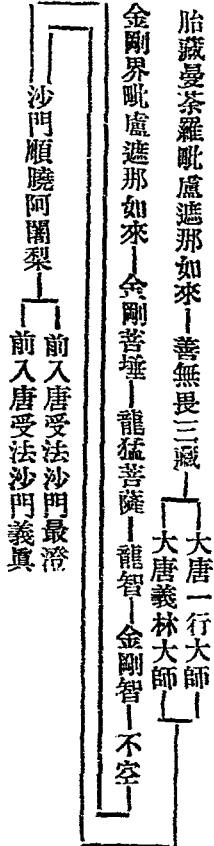 胎藏曼荼羅毗盧遮那如來―善無畏三藏
大唐一行大師
大唐義林大師
金剛界毗盧遮那如來―金剛菩埵―龍猛菩薩―龍智―金剛智―不空
沙門順曉阿闍梨
前入唐受法沙門最澄
前入唐受法沙門義眞